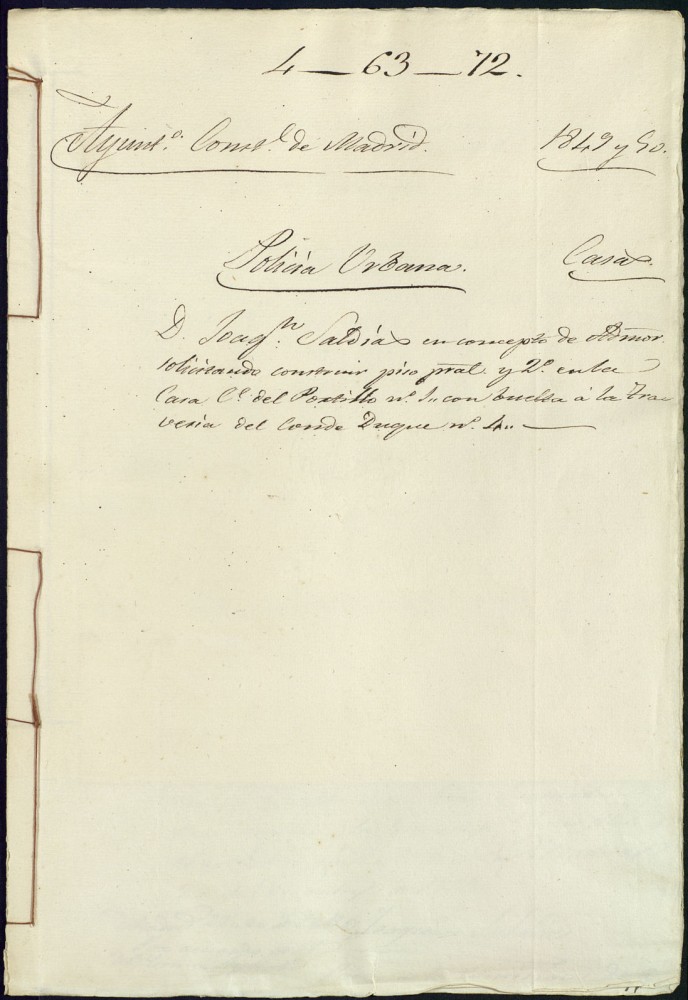 4 — 63 — 72.
Ayunt.º Const.l de Madrid. 1849 y 50.
Policia Urbana. Casas.
D. Joaq.n Saldias en concepto de Admor.
solicitando construir piso pral. y 2.º en la
Casa C.e del Portillo n.º 1.. con buelta á la Tra
vesia del Conde Duque n.º 4.. —